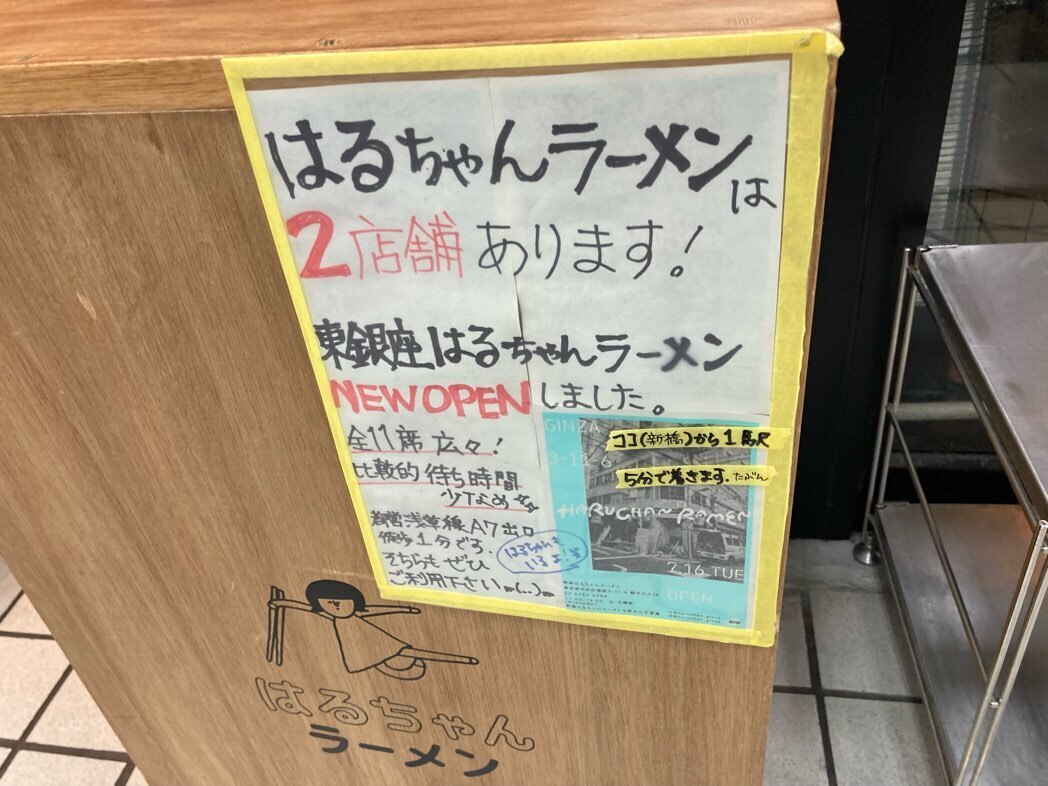 はるちゃんラーメンは
2店舗あります!
東銀座はるちゃんラーメン
NEW OPENしました。
全11席 広々!
比較的 待ち時間
少なめ
都営浅草線A7出口
徒歩1分です。
そちらもぜひ
ご利用下さいm(..)m
はるちゃんも
いるよ!
GINZA
3-11-6
ココ(新橋)から1駅
5分で着きます。たぶん
HARUCHAN RAMEN
7.16 TUE
OPEN
はるちゃん
ラーメン